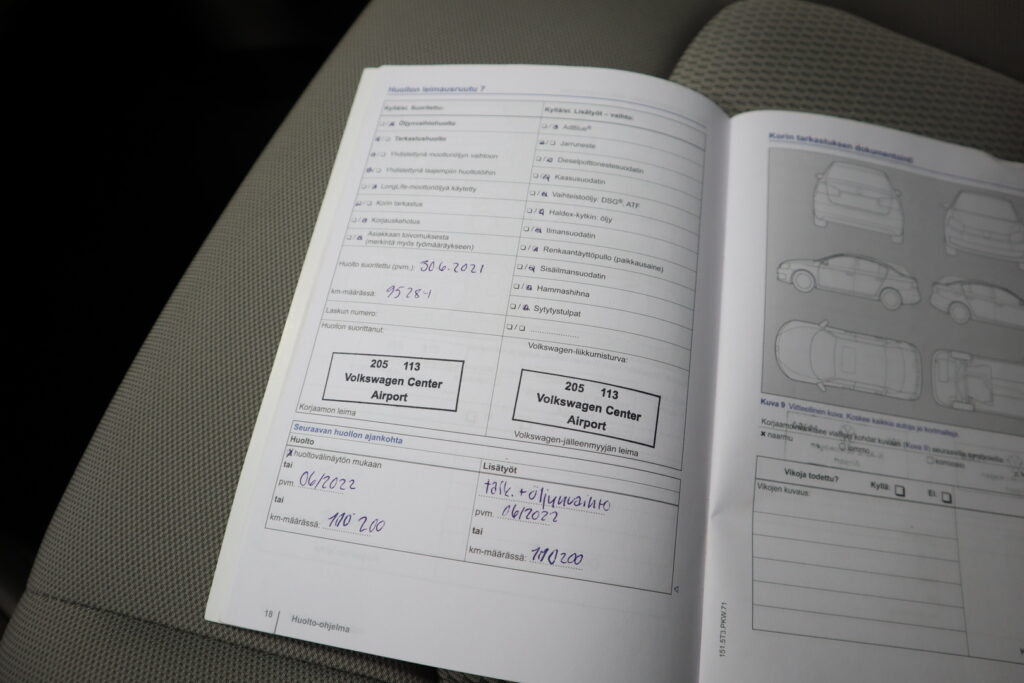 Huollon leimausruutu 7
Kyllä/ei. Suoritettu:
Öljynvaihtohuolto
Tarkastushuolto
Yhdistettynä moottoriöljyn vaihtoon
Yhdistettynä laajempiin huoltotöihin
LongLife-moottoriöljyä käytetty
Korin tarkastus
Korjauskehotus
Asiakkaan toivomuksesta
(merkintä myös työmääräykseen)
Huolto suoritettu (pvm.): 30.6.2021
km-määrässä:
Laskun numero:
Huollon suorittanut:
205 113
Volkswagen Center
Airport
Korjaamon leima
Kyllä/ei. Lisätyöt – vaihto:
AdBlue®
Jarruneste
Dieselpolttonestesuodatin
Kaasusuodatin
Vaihteistoöljy: DSG®, ATF
Haldex-kytkin: öljy
Ilmansuodatin
Renkaantäyttöpullo (paikkausaine)
Sisäilmansuodatin
Hammashihna
Sytytystulpat
Volkswagen-liikkumisturva:
205 113
Volkswagen Center
Airport
Volkswagen-jälleenmyyjän leima
Seuraavan huollon ajankohta
Huolto
x huoltovälinäytön mukaan
tai
pvm. 06/2022
tai
km-määrässä: 110 200
Lisätyöt
tark. + öljynvaihto
pvm. 06/2022
tai
km-määrässä: 110 200
18 Huolto-ohjelma
Korin tarkastuksen dokumentointi
Kuva 9 Viitteellinen kuva: Koskee kaikkia autoja ja korimalleja.
x naarmu
Vikoja todettu? Kyllä: Ei:
Vikojen kuvaus:
151.5T3.PKW.71